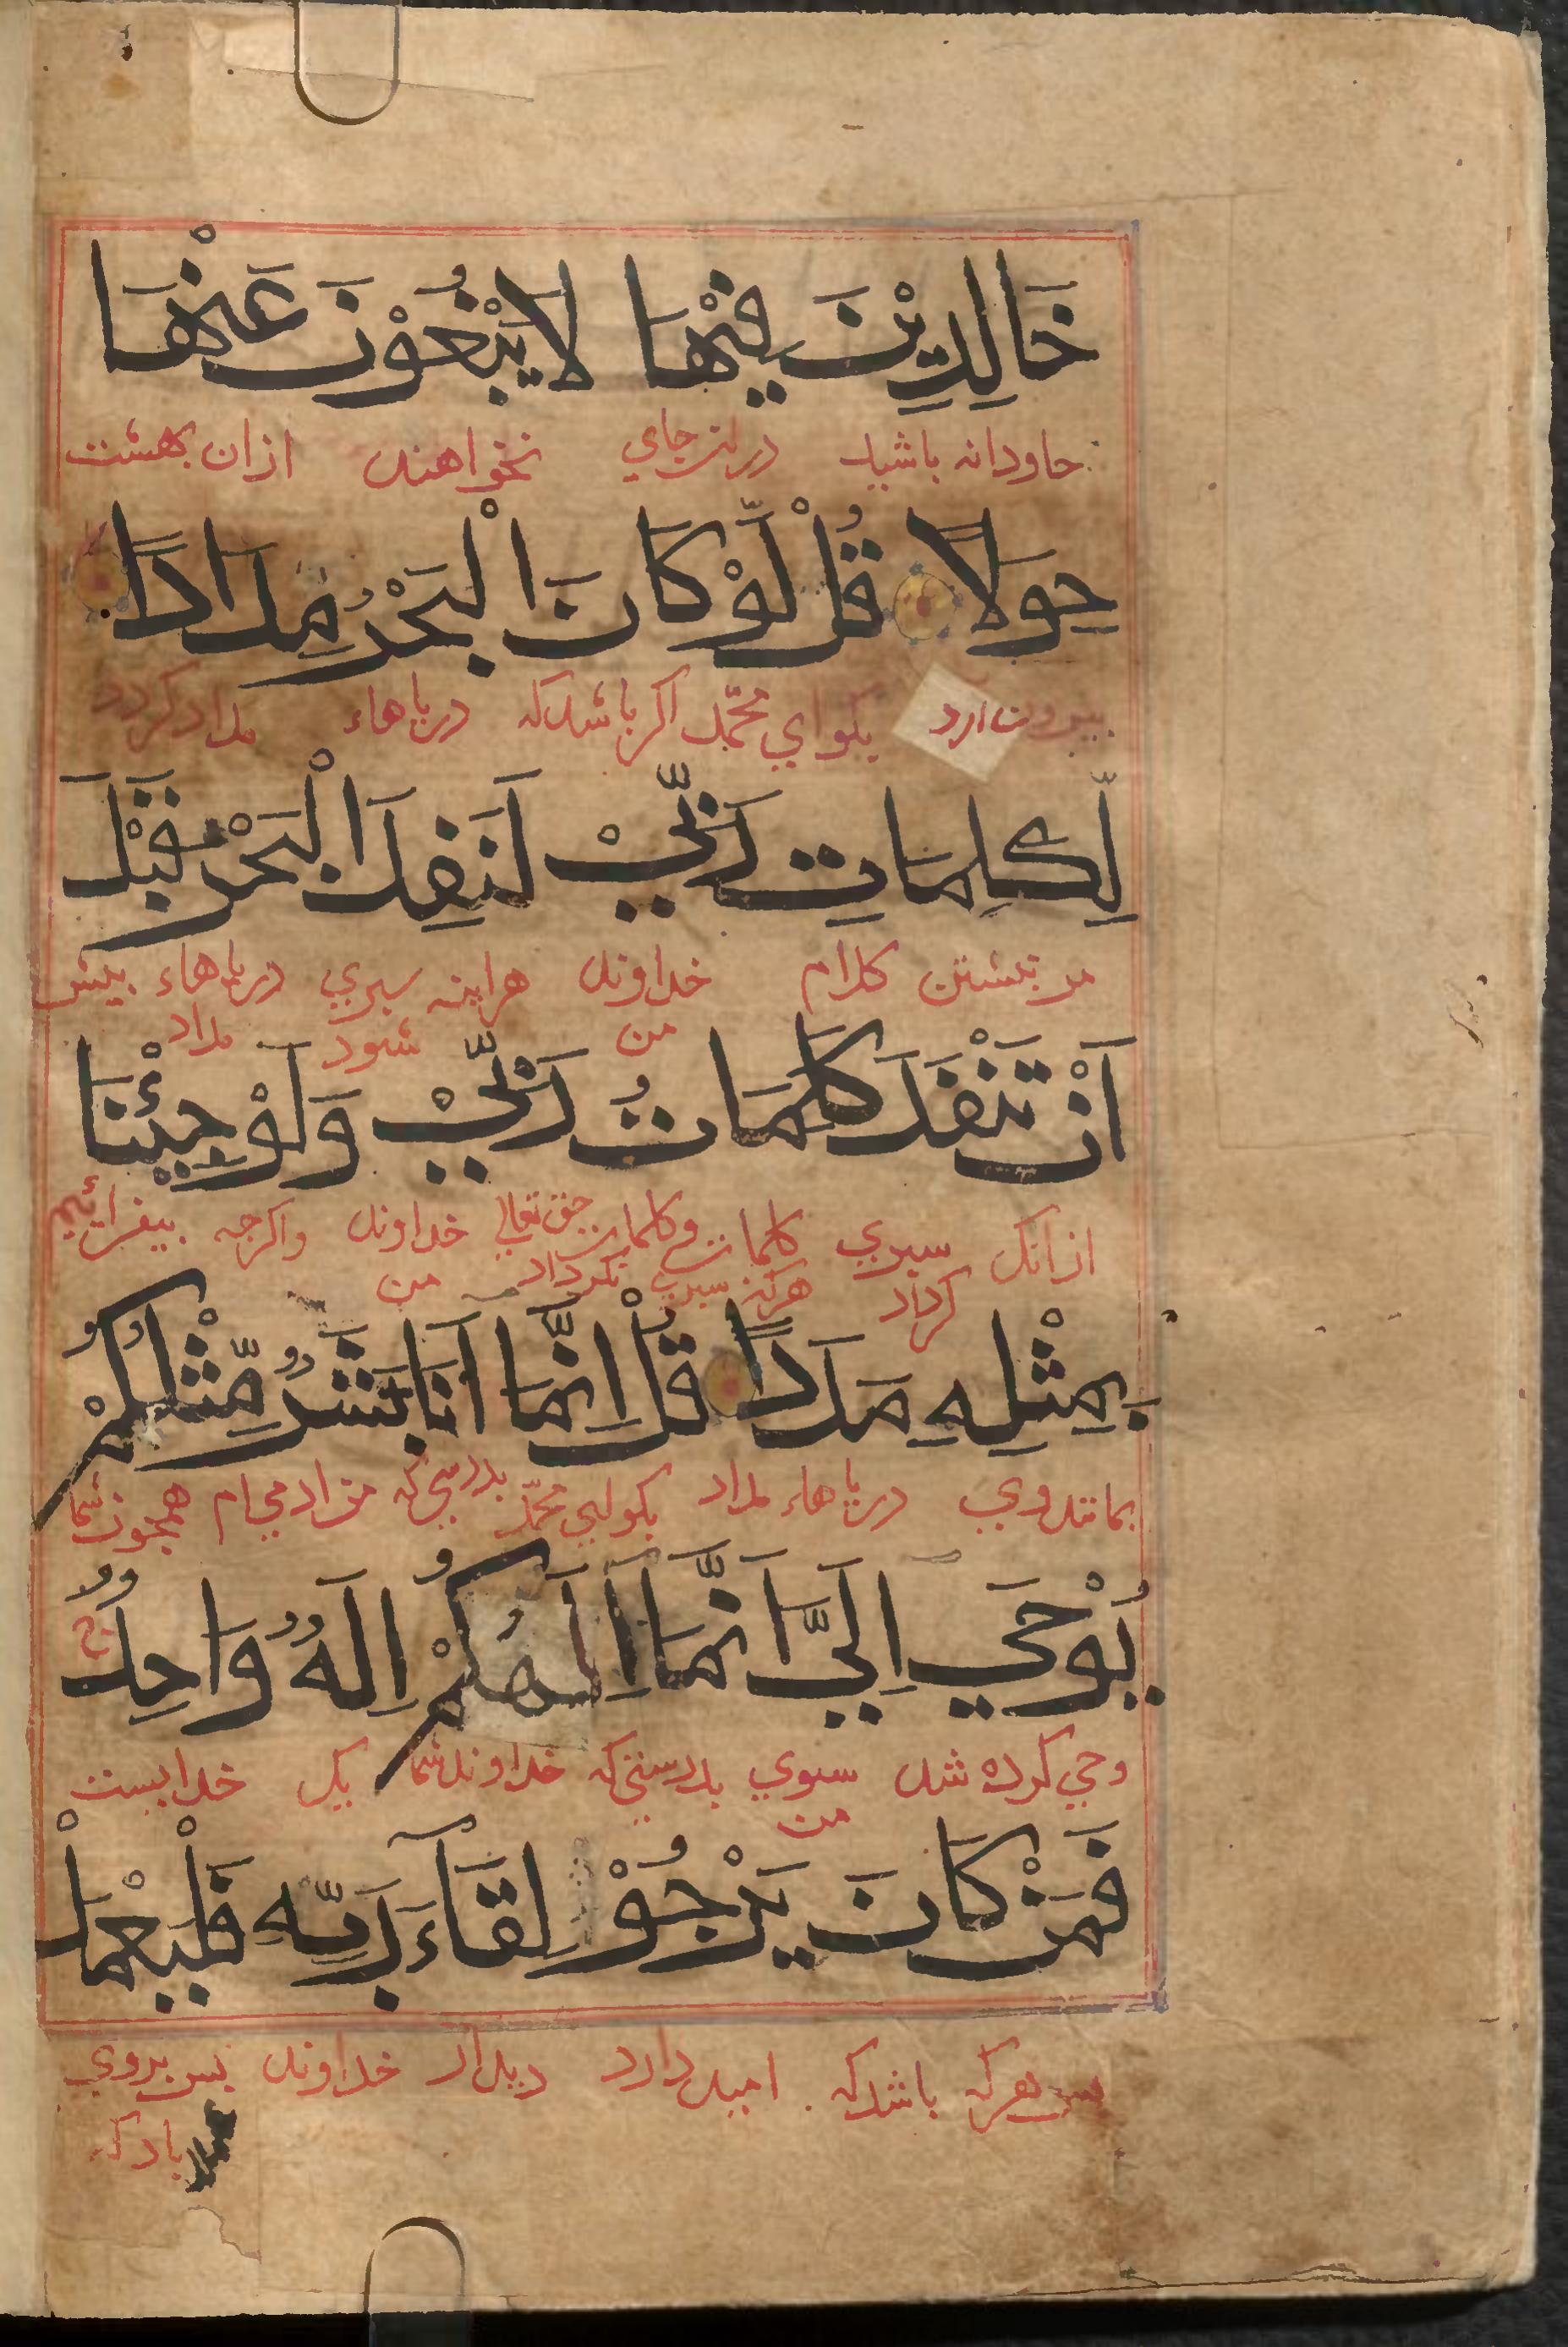 خَالِدِيْنَ فِيْهَا لَا يَبْغُوْنَ عَنْهَا
جاودانه باشید درین جاي نخواهند ازان بهشت
حِوَلًا قُلْ لَّوْ كَانَ الْبَحْرُ مِدَادًا
بیرون آرد بکو اي محمّد اکر باشد که دریاهاء مداد کردد
لِّكَلِمَاتِ رَبِّيْ لَنَفِدَ الْبَحْرُ قَبْلَ
مر نبشتن کلام خداوند هراینه سپري دریاهاء پیش
من شود مداد
اَنْ تَنْفَدَ كَلِمَاتُ رَبِّيْ وَلَوْ جِئْنَا
ازانک سپري کلمات و کلمات حق تعالي خداوند واکرچه بیفزائیم
کردد هرکز سپري نکردد من
بِمِثْلِهِ مَدَدًا قُلْ اِنَّمَا اَنَا بَشَرٌ مِّثْلُكُمْ
بمانند وي دریاهاء مداد بکو اي محمّد بدرستي که من ادمي ام همچون شما
يُوْحَي اِلَيَّ اَنَّمَا اِلَهُكُمْ اِلَهٌ وَاحِدٌ
وحي کرده شد سوي بدرستي که خداوند شما یک خدایست
من
فَمَنْ كَانَ يَرْجُوْ لِقَآءَ رَبِّهِ فَلْيَعْمَلْ
پس هرکه باشد که امید دارد دیدار خداوند پس بروي
بادکه